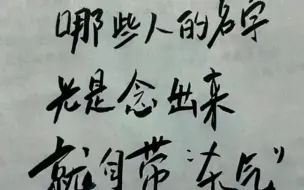 哪些人的名字
光是念出来
就自带“东气”